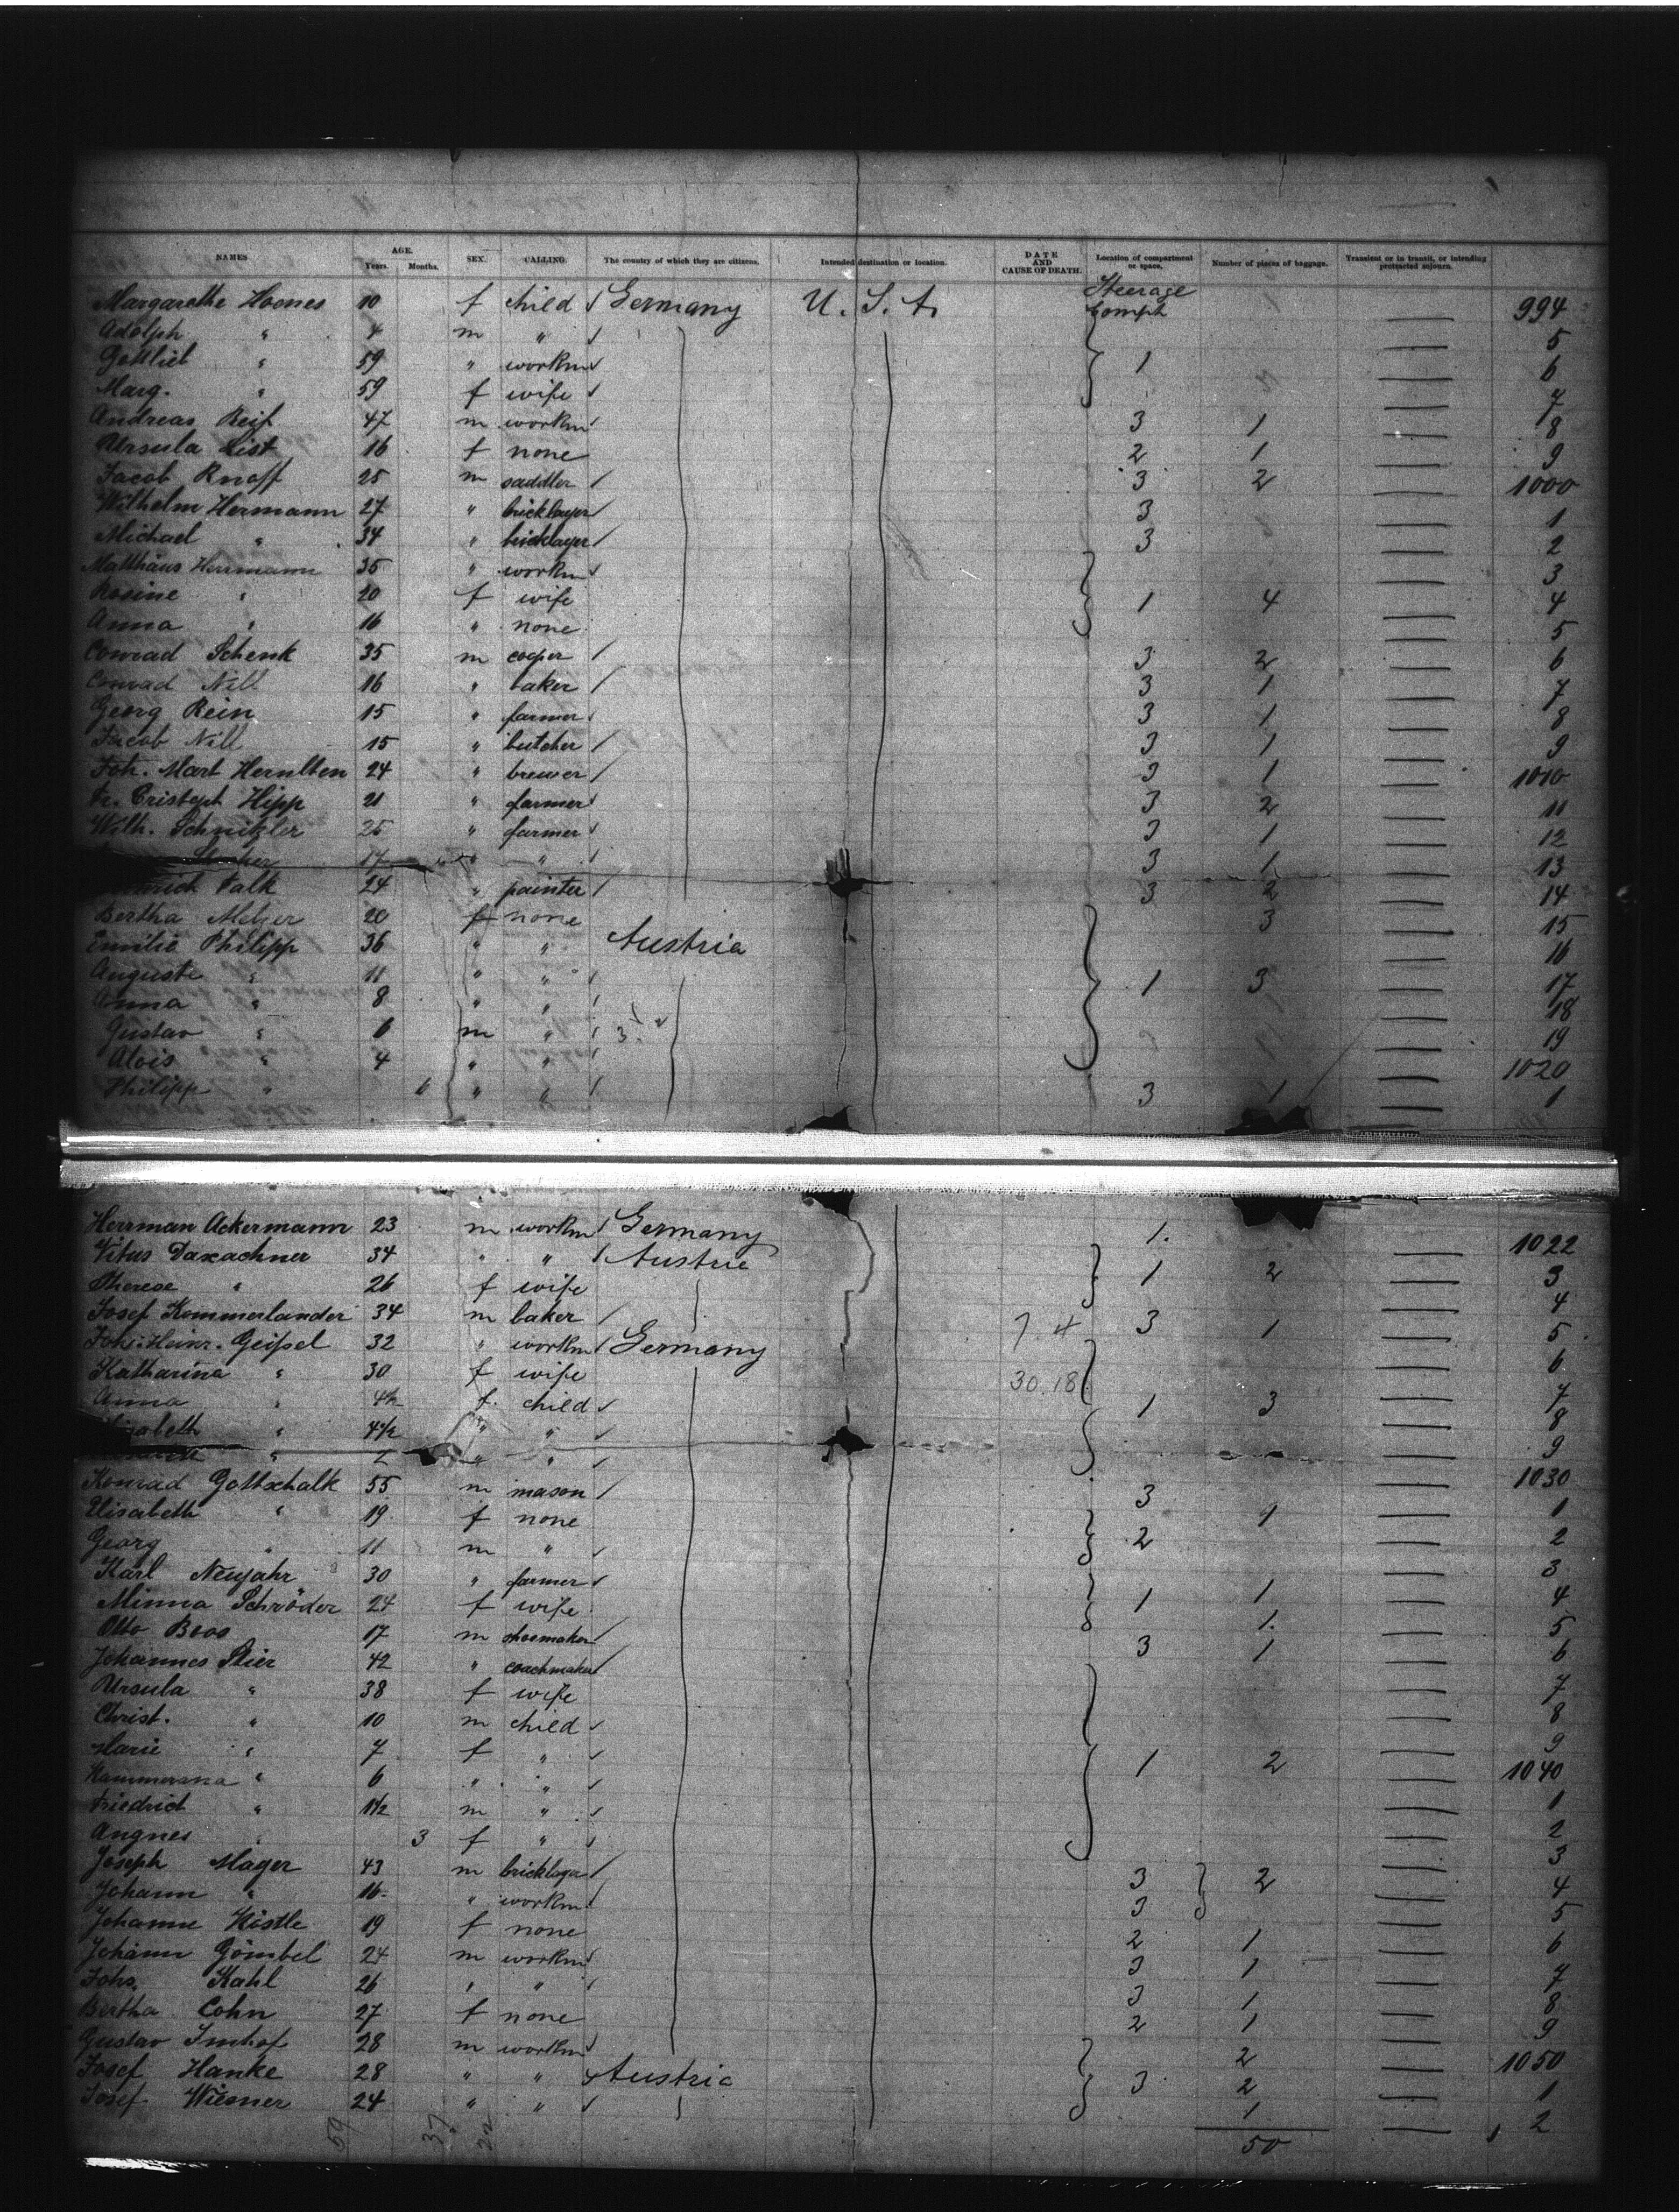 NAMES AGE. Years. Months. SEX. CALLING. The country of which they are citizens. Intended destination or location. DATE AND CAUSE OF DEATH. Location of compartment or space. Number of pieces of baggage. Transient or in transit, or intending protracted sojourn.
Margarethe Hoenes 10 f child Germany U. S. A. Steerage Comph — 994
Adolph " 4 m " — 5
Gottlieb " 59 " workm 1 — 6
Marg. " 59 f wife — 7
Andreas Reif 47 m workm 3 1 — 8
Ursula List 16 f none 2 1 — 9
Jacob Knoff 25 m saddler 3 2 — 1000
Wilhelm Hermann 27 " bricklayer 3 — 1
Michael " 34 " bricklayer 3 — 2
Matthäus Herrmann 35 " workm — 3
Rosine " 20 f wife 1 4 — 4
Anna " 16 " none — 5
Conrad Schenk 35 m cooper 3 2 — 6
Conrad Nill 16 " baker 3 1 — 7
Georg Rein 15 " farmer 3 1 — 8
Jacob Nill 15 " butcher 3 1 — 9
Joh. Mart Hernlten 24 " brewer 3 1 — 1010
Fr. Cristoph Hipp 21 " farmer 3 2 — 11
Wilh. Schnitzler 25 " farmer 3 1 — 12
17 " " 3 1 — 13
Falk 24 " painter 3 2 — 14
Bertha Metzer 20 f none 3 — 15
Emilie Philipp 36 " " Austria — 16
Auguste " 11 " " 1 3 — 17
Anna " 8 " " — 18
Gustav " 6 m " — 19
Alois " 4 " " — 1020
Philipp " 6 " " 3 1 — 1
Herrman Ackermann 23 m workm Germany 1. — 1022
Vitus Daxachner 34 " " Austria 1 2 — 3
Therese " 26 f wife — 4
Josef Kommerlander 34 m baker 7 4 3 1 — 5
Joh. Heinr. Geipel 32 " workm Germany — 6
Katharina " 30 f wife 30.18 — 7
Anna " 4½ f. child 1 3 — 8
" 4½ " " — 9
" " " — 1030
Konrad Gottschalk 55 m mason 3 — 1
Elisabeth " 19 f none 2 1 — 2
Georg " 11 m " — 3
Karl Neujahr 30 " farmer 1 1 — 4
Minna Schröder 24 f wife 1. — 5
Otto Boos 17 m shoemaker 3 1 — 6
Johannes Stier 42 " coachmaker — 7
Ursula " 38 f wife — 8
Christ. " 10 m child — 9
Marie " 7 f " 1 2 — 1040
" 6 " " — 1
Friedrich " 1½ m " — 2
Angnes " 3 f " — 3
Joseph Mager 43 m bricklayer 3 2 — 4
Johann " 16 " workm 3 — 5
Johanne Kistle 19 f none 2 1 — 6
Johann Gömbel 24 m workm 3 1 — 7
Johs. Kahl 26 " " 3 1 — 8
Bertha Cohn 27 f none 2 1 — 9
Gustav Imhof 28 m workm 2 — 1050
Josef Hanke 28 " " Austria 3 2 — 1
Josef Wiesner 24 " " 1 — 2
59 37 22 50